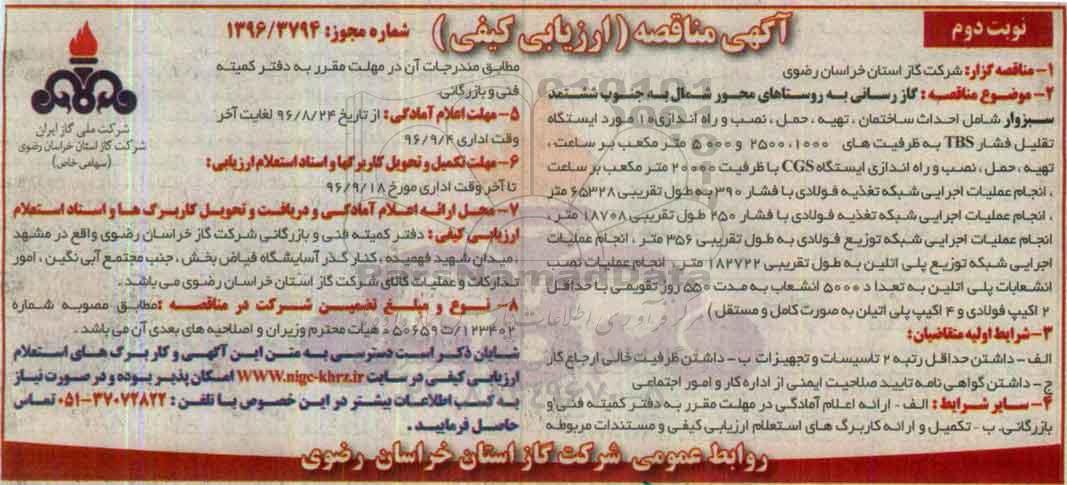 نوبت دوم
آگهی مناقصه ( ارزیابی کیفی )
شماره مجوز: ۱۳۹۶/۳۷۹۴
شرکت ملی گاز ایران
شرکت گاز استان خراسان رضوی
(سهامی خاص)
۱- مناقصه گزار: شرکت گاز استان خراسان رضوی
۲- موضوع مناقصه : گاز رسانی به روستاهای محور شمال به جنوب ششتمد
سبزوار شامل احداث ساختمان ، تهیه ، حمل ، نصب و راه اندازی ۱۰ مورد ایستگاه
تقلیل فشار TBS به ظرفیت های ۱۰۰۰، ۲۵۰۰ و ۵۰۰۰ متر مکعب بر ساعت ،
تهیه ، حمل ، نصب و راه اندازی ایستگاه CGS با ظرفیت ۲۰۰۰۰ متر مکعب بر ساعت
، انجام عملیات اجرایی شبکه تغذیه فولادی با فشار ۳۹۰ به طول تقریبی ۶۵۳۲۸ متر
، انجام عملیات اجرایی شبکه تغذیه فولادی با فشار ۲۵۰ طول تقریبی ۱۸۷۰۸ متر ،
انجام عملیات اجرایی شبکه توزیع فولادی به طول تقریبی ۳۵۶ متر ، انجام عملیات
اجرایی شبکه توزیع پلی اتلین به طول تقریبی ۱۸۲۷۲۲ متر ، انجام عملیات نصب
انشعابات پلی اتلین به تعداد ۵۰۰۰ انشعاب به مدت ۵۵۰ روز تقویمی با حداقل
۲ اکیپ فولادی و ۴ اکیپ پلی اتیلن به صورت کامل و مستقل )
۳- شرایط اولیه متقاضیان:
الف - داشتن حداقل رتبه ۲ تاسیسات و تجهیزات ب - داشتن ظرفیت خالی ارجاع کار
ج - داشتن گواهی نامه تایید صلاحیت ایمنی از اداره کار و امور اجتماعی
۴- سایر شرایط : الف - ارائه اعلام آمادگی در مهلت مقرر به دفتر کمیته فنی و
بازرگانی. ب - تکمیل و ارائه کاربرگ های استعلام ارزیابی کیفی و مستندات مربوطه
مطابق مندرجات آن در مهلت مقرر به دفتر کمیته
فنی و بازرگانی.
۵- مهلت اعلام آمادگی : از تاریخ ۹۶/۸/۲۴ لغایت آخر
وقت اداری ۹۶/۹/۴
۶- مهلت تکمیل و تحویل کاربرگها و اسناد استعلام ارزیابی :
تا آخر وقت اداری مورخ ۹۶/۹/۱۸
۷- محل ارائه اعلام آمادگی و دریافت و تحویل کاربرگ ها و اسناد استعلام
ارزیابی کیفی : دفتر کمیته فنی و بازرگانی شرکت گاز خراسان رضوی واقع در مشهد
، میدان شهید فهمیده ، کنار گذر آسایشگاه فیاض بخش ، جنب مجتمع آبی نگین ، امور
تدارکات و عملیات کالای شرکت گاز استان خراسان رضوی می باشد .
۸- نوع و مبلغ تضمین شرکت در مناقصه : مطابق مصوبه شماره
۱۲۳۴۰۲/ت ۵۰۶۵۹ ه هیات محترم وزیران و اصلاحیه های بعدی آن می باشد .
شایان ذکر است دسترسی به متن این آگهی و کار برگ های استعلام
ارزیابی کیفی در سایت WWW.nigc-khrz.ir امکان پذیر بوده و در صورت نیاز
به کسب اطلاعات بیشتر در این خصوص با تلفن : ۳۷۰۷۲۸۲۲-۰۵۱ تماس
حاصل فرمایید .
روابط عمومی شرکت گاز استان خراسان رضوی
ParsNamadData